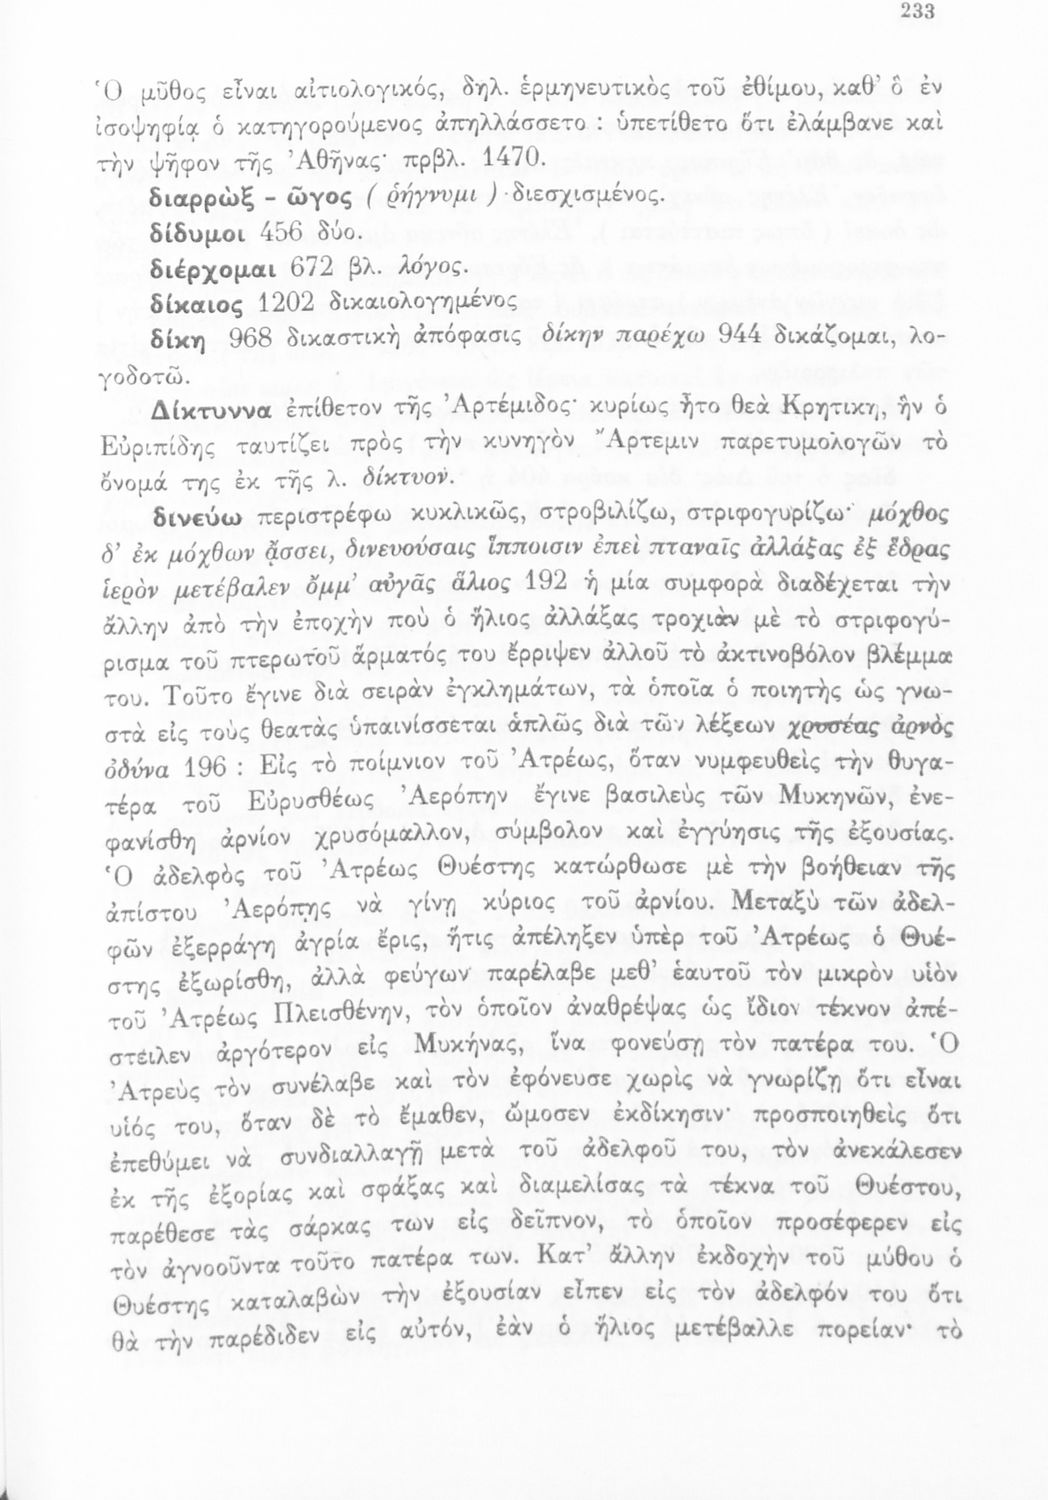 233
Ὁ μῦθος εἶναι αἰτιολογικός, δηλ. ἑρμηνευτικὸς τοῦ ἐθίμου, καθ’ ὃ ἐν
ἰσοψηφίᾳ ὁ κατηγορούμενος ἀπηλλάσσετο : ὑπετίθετο ὅτι ἐλάμβανε καὶ
τὴν ψῆφον τῆς Ἀθηνᾶς· πρβλ. 1470.
διαρρὼξ - ῶγος ( ῥήγνυμι ) διεσχισμένος.
δίδυμοι 456 δύο.
διέρχομαι 672 βλ. λόγος.
δίκαιος 1202 δικαιολογημένος
δίκη 968 δικαστικὴ ἀπόφασις δίκην παρέχω 944 δικάζομαι, λο-
γοδοτῶ.
Δίκτυννα ἐπίθετον τῆς Ἀρτέμιδος· κυρίως ἦτο θεὰ Κρητική, ἣν ὁ
Εὐριπίδης ταυτίζει πρὸς τὴν κυνηγὸν Ἄρτεμιν παρετυμολογῶν τὸ
ὄνομά της ἐκ τῆς λ. δίκτυον.
δινεύω περιστρέφω κυκλικῶς, στροβιλίζω, στριφογυρίζω· μόχθος
δ’ ἐκ μόχθων ᾄσσει, δινευούσαις ἵπποισιν ἐπεὶ πταναῖς ἀλλάξας ἐξ ἕδρας
ἱερὸν μετέβαλεν ὄμμ’ αὐγᾶς ἅλιος 192 ἡ μία συμφορὰ διαδέχεται τὴν
ἄλλην ἀπὸ τὴν ἐποχὴν ποὺ ὁ ἥλιος ἀλλάξας τροχιὰν μὲ τὸ στριφογύ-
ρισμα τοῦ πτερωτοῦ ἅρματός του ἔρριψεν ἀλλοῦ τὸ ἀκτινοβόλον βλέμμα
του. Τοῦτο ἔγινε διὰ σειρὰν ἐγκλημάτων, τὰ ὁποῖα ὁ ποιητὴς ὡς γνω-
στὰ εἰς τοὺς θεατὰς ὑπαινίσσεται ἁπλῶς διὰ τῶν λέξεων χρυσέας ἀρνὸς
ὀδύνα 196 : Εἰς τὸ ποίμνιον τοῦ Ἀτρέως, ὅταν νυμφευθεὶς τὴν θυγα-
τέρα τοῦ Εὐρυσθέως Ἀερόπην ἔγινε βασιλεὺς τῶν Μυκηνῶν, ἐνε-
φανίσθη ἀρνίον χρυσόμαλλον, σύμβολον καὶ ἐγγύησις τῆς ἐξουσίας.
Ὁ ἀδελφὸς τοῦ Ἀτρέως Θυέστης κατώρθωσε μὲ τὴν βοήθειαν τῆς
ἀπίστου Ἀερόπης νὰ γίνῃ κύριος τοῦ ἀρνίου. Μεταξὺ τῶν ἀδελ-
φῶν ἐξερράγη ἀγρία ἔρις, ἥτις ἀπέληξεν ὑπὲρ τοῦ Ἀτρέως ὁ Θυέ-
στης ἐξωρίσθη, ἀλλὰ φεύγων παρέλαβε μεθ’ ἑαυτοῦ τὸν μικρὸν υἱὸν
τοῦ Ἀτρέως Πλεισθένην, τὸν ὁποῖον ἀναθρέψας ὡς ἴδιον τέκνον ἀπέ-
στειλεν ἀργότερον εἰς Μυκήνας, ἵνα φονεύσῃ τὸν πατέρα του. Ὁ
Ἀτρεὺς τὸν συνέλαβε καὶ τὸν ἐφόνευσε χωρὶς νὰ γνωρίζῃ ὅτι εἶναι
υἱός του, ὅταν δὲ τὸ ἔμαθεν, ὤμοσεν ἐκδίκησιν· προσποιηθεὶς ὅτι
ἐπεθύμει νὰ συνδιαλλαγῇ μετὰ τοῦ ἀδελφοῦ του, τὸν ἀνεκάλεσεν
ἐκ τῆς ἐξορίας καὶ σφάξας καὶ διαμελίσας τὰ τέκνα τοῦ Θυέστου,
παρέθεσε τὰς σάρκας των εἰς δεῖπνον, τὸ ὁποῖον προσέφερεν εἰς
τὸν ἀγνοοῦντα τοῦτο πατέρα των. Κατ’ ἄλλην ἐκδοχὴν τοῦ μύθου ὁ
Θυέστης καταλαβὼν τὴν ἐξουσίαν εἶπεν εἰς τὸν ἀδελφόν του ὅτι
θὰ τὴν παρέδιδεν εἰς αὐτόν, ἐὰν ὁ ἥλιος μετέβαλλε πορείαν· τὸ